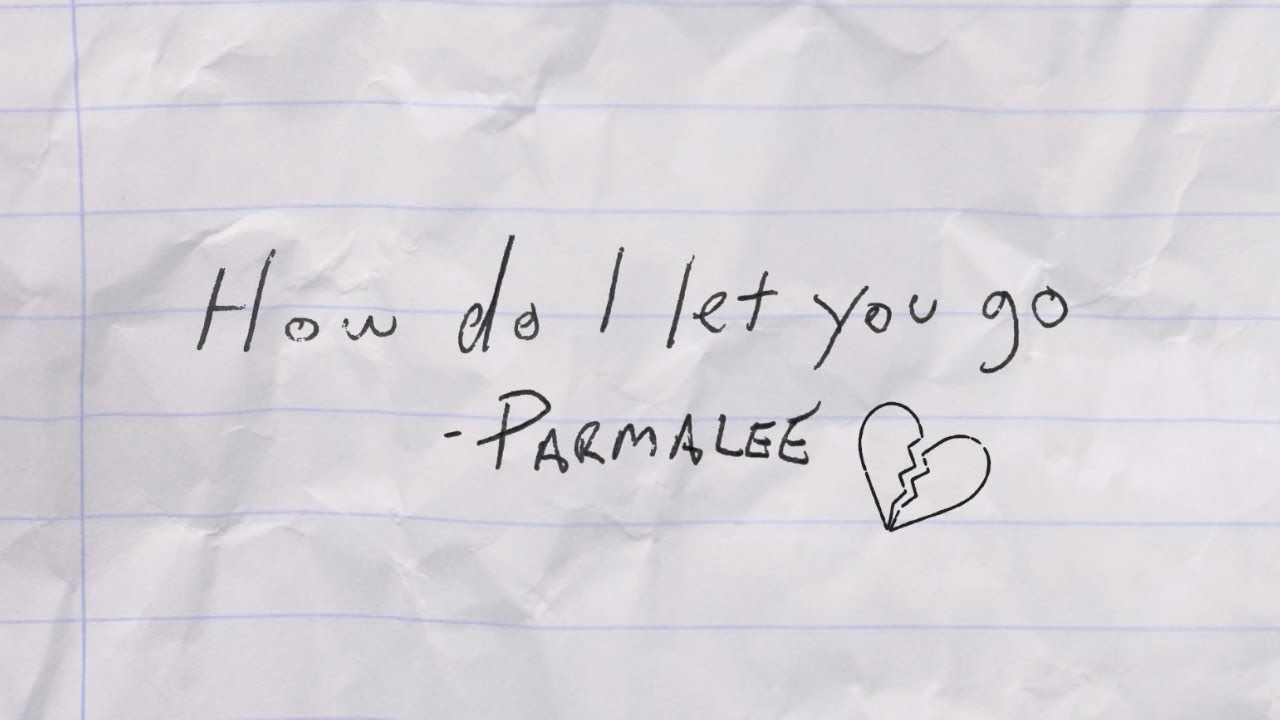 How do I let you go
- PARMALEE